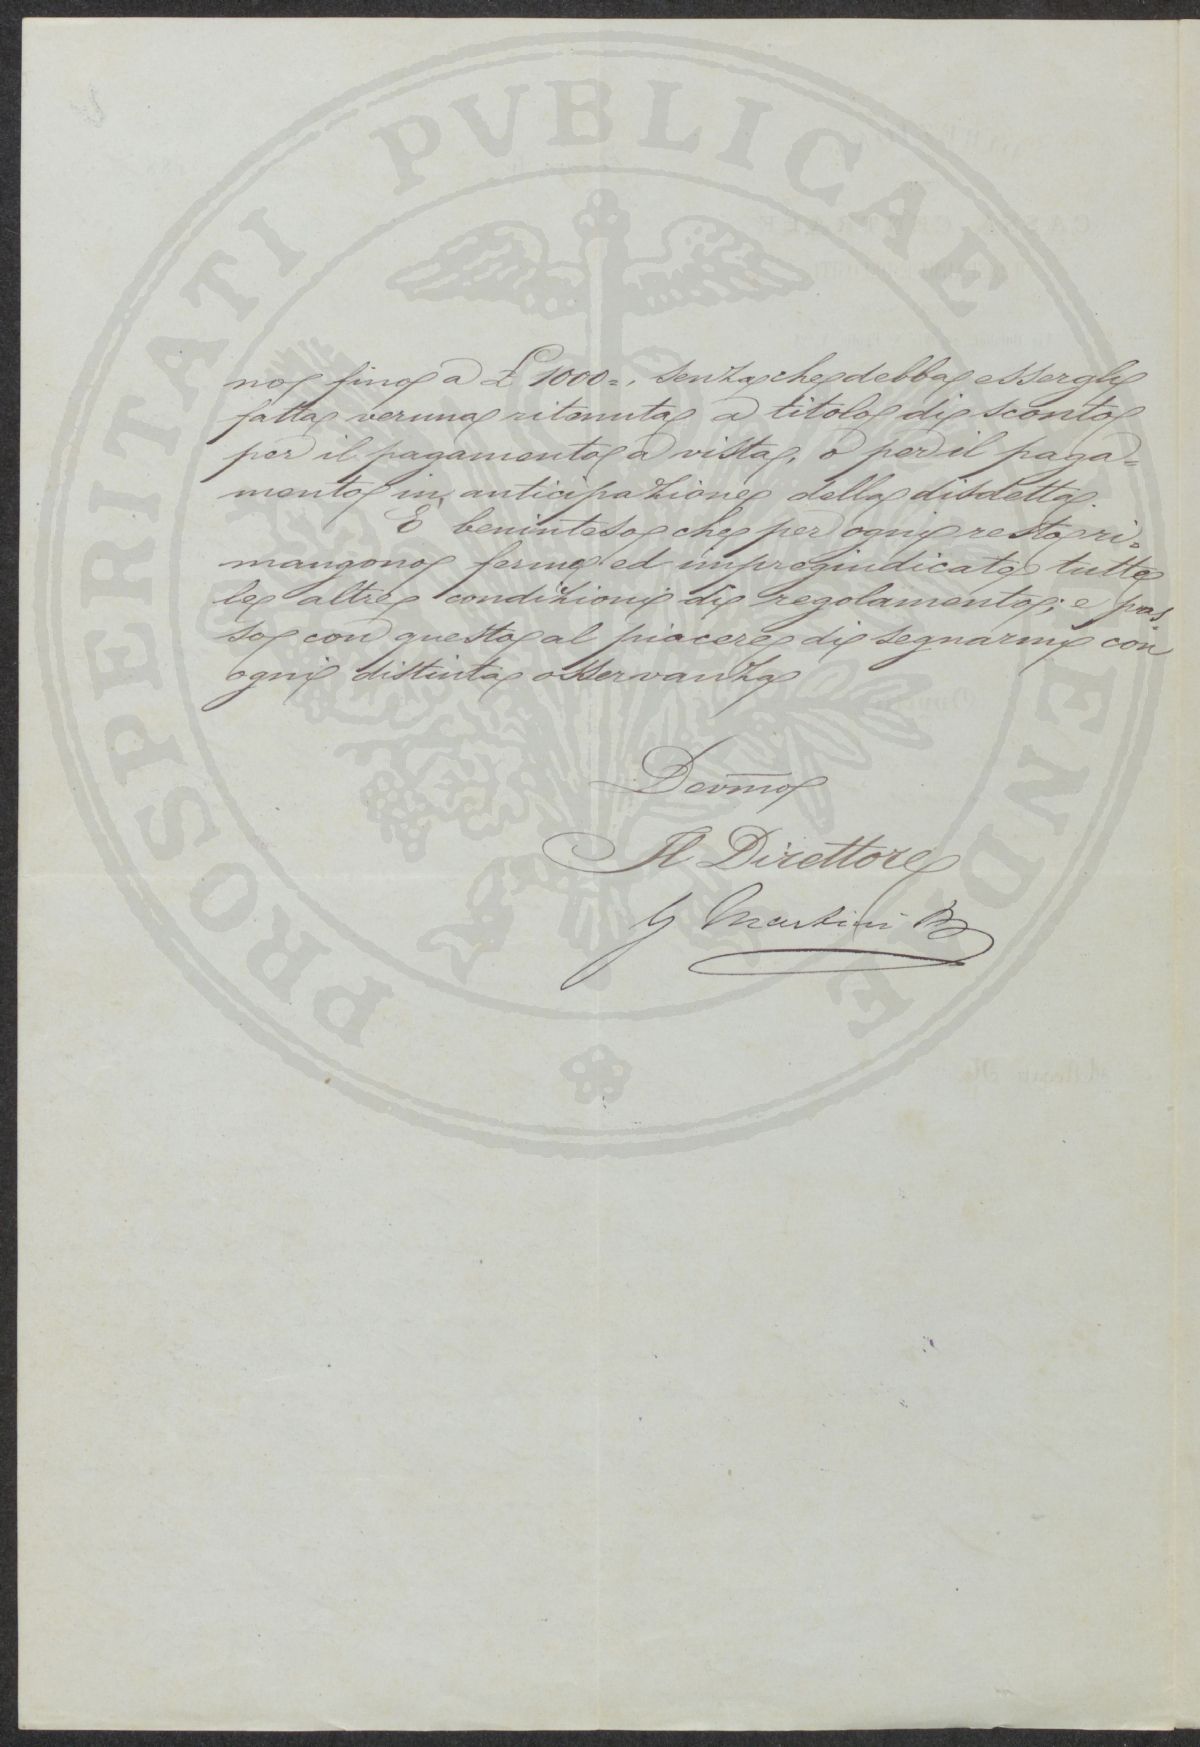 PROSPERITATI PVBLICAE AVGENDAE
no fino a £ 1000=, senza che debba essergli
fatta veruna ritenuta a titolo di sconto
per il pagamento a vista, o per il paga=
mento in anticipazione della disdetta.
È beninteso che per ogni resto ri=
mangono ferme ed impregiudicate tutte
le altre condizioni di regolamento; e pas
so con questo al piacere di segnarmi con
ogni distinta osservanza
Devmo
Il Direttore
G Martini B